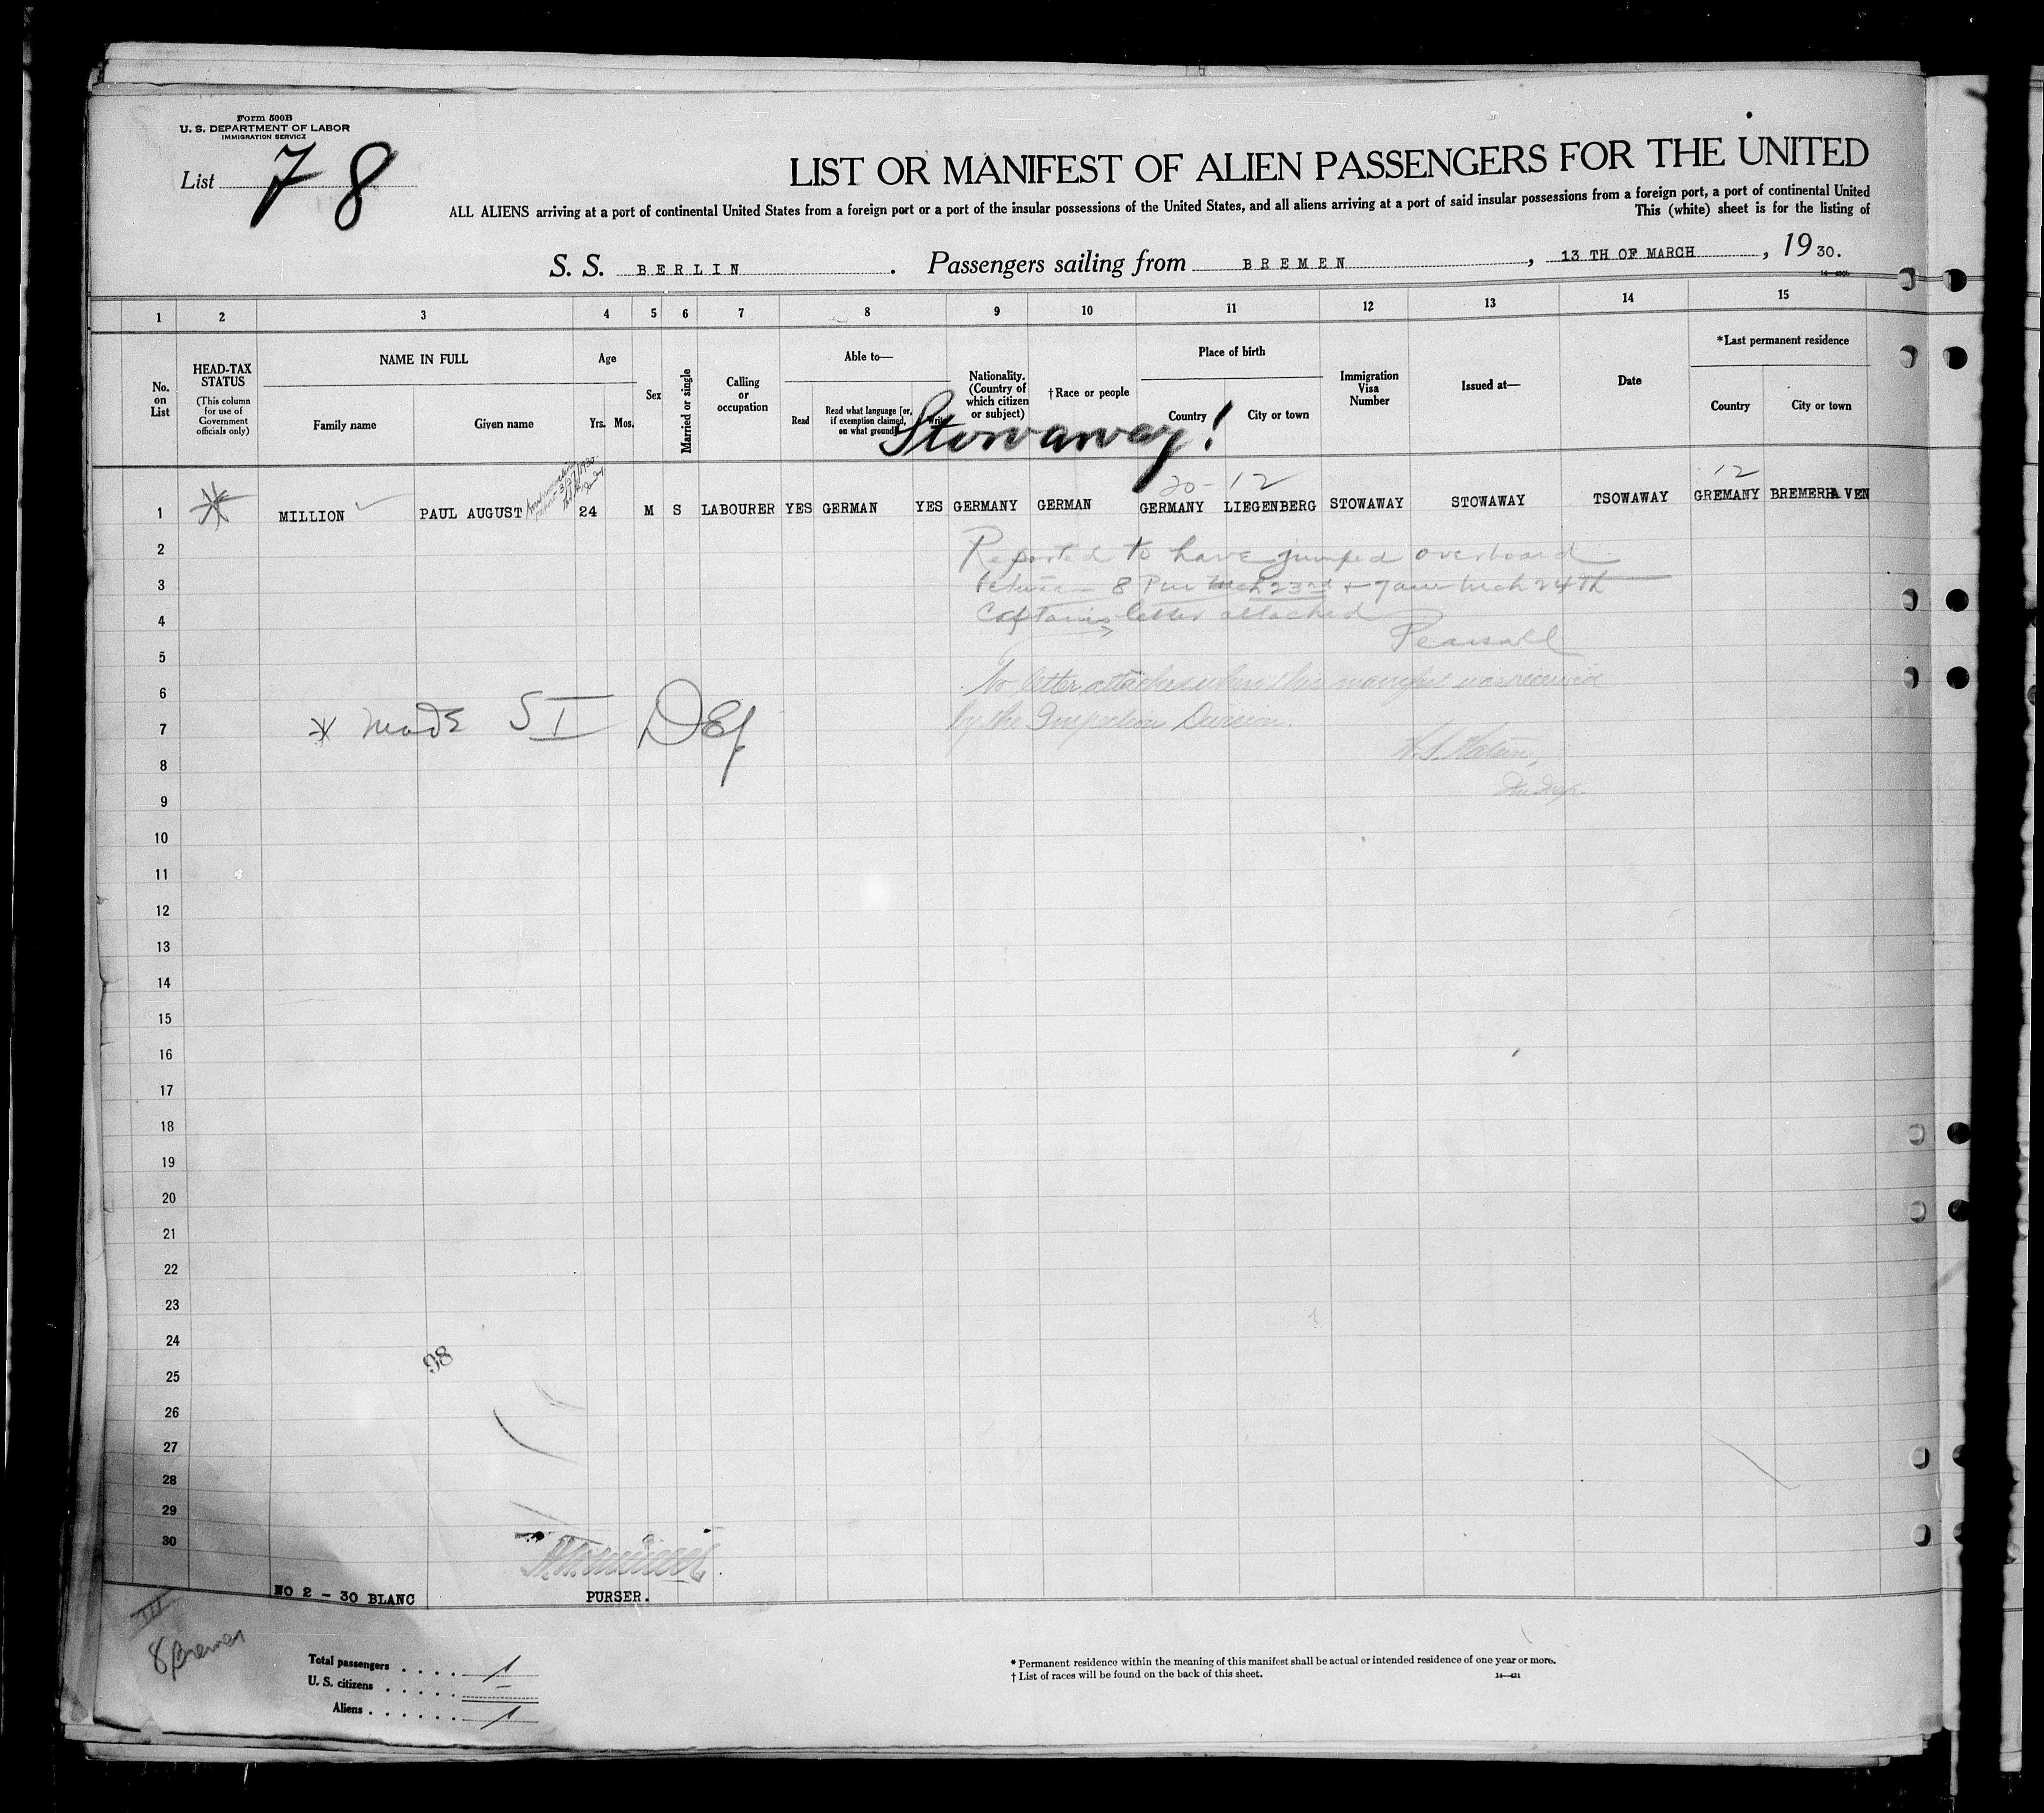 Form 500B
U. S. DEPARTMENT OF LABOR
IMMIGRATION SERVICE
List 78
LIST OR MANIFEST OF ALIEN PASSENGERS FOR THE UNITED
ALL ALIENS arriving at a port of continental United States from a foreign port or a port of the insular possessions of the United States, and all aliens arriving at a port of said insular possessions from a foreign port, a port of continental United
This (white) sheet is for the listing of
S. S. BERLIN. Passengers sailing from BREMEN, 13 TH OF MARCH, 1930.
1 2 3 4 5 6 7 8 9 10 11 12 13 14 15
No. on List
HEAD-TAX STATUS (This column for use of Government officials only)
NAME IN FULL
Family name
Given name
Age
Yrs. Mos.
Sex
Married or single
Calling or occupation
Able to—
Read
Read what language [or, if exemption claimed, on what ground]
Write
Nationality. (Country of which citizen or subject)
†Race or people
Place of birth
Country
City or town
Immigration Visa Number
Issued at—
Date
*Last permanent residence
Country
City or town
Stowaway!
20- 12
12
1 MILLION PAUL AUGUST 24 M S LABOURER YES GERMAN YES GERMANY GERMAN GERMANY LIEGENBERG STOWAWAY STOWAWAY TSOWAWAY GREMANY BREMERHAVEN
2
Reported to have jumped overboard
3
between 8 Pm Mch 23rd + 7 am Mch 24th
4
Captains letter attached
Pearsall
5
6
No letter attached when this manifest was received
7
by the Inspection Division.
* Made SI DEf
8
9
10
11
12
13
14
15
16
17
18
19
20
21
22
23
24
98
25
26
27
28
29
30
NO 2 - 30 BLANC
PURSER.
III
8 Bremen
Total passengers 1
U. S. citizens –
Aliens 1
* Permanent residence within the meaning of this manifest shall be actual or intended residence of one year or more.
† List of races will be found on the back of this sheet.